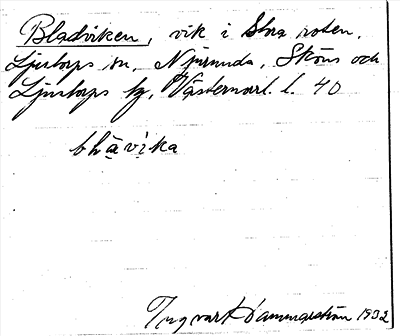 Bladviken, vik i Stora roten,
Ljustorps sn, Njurunda, Sköns och
Ljustorps tg, Västernorrl. l. 40
bḷạvịka
Ingvar Hammarström 1932